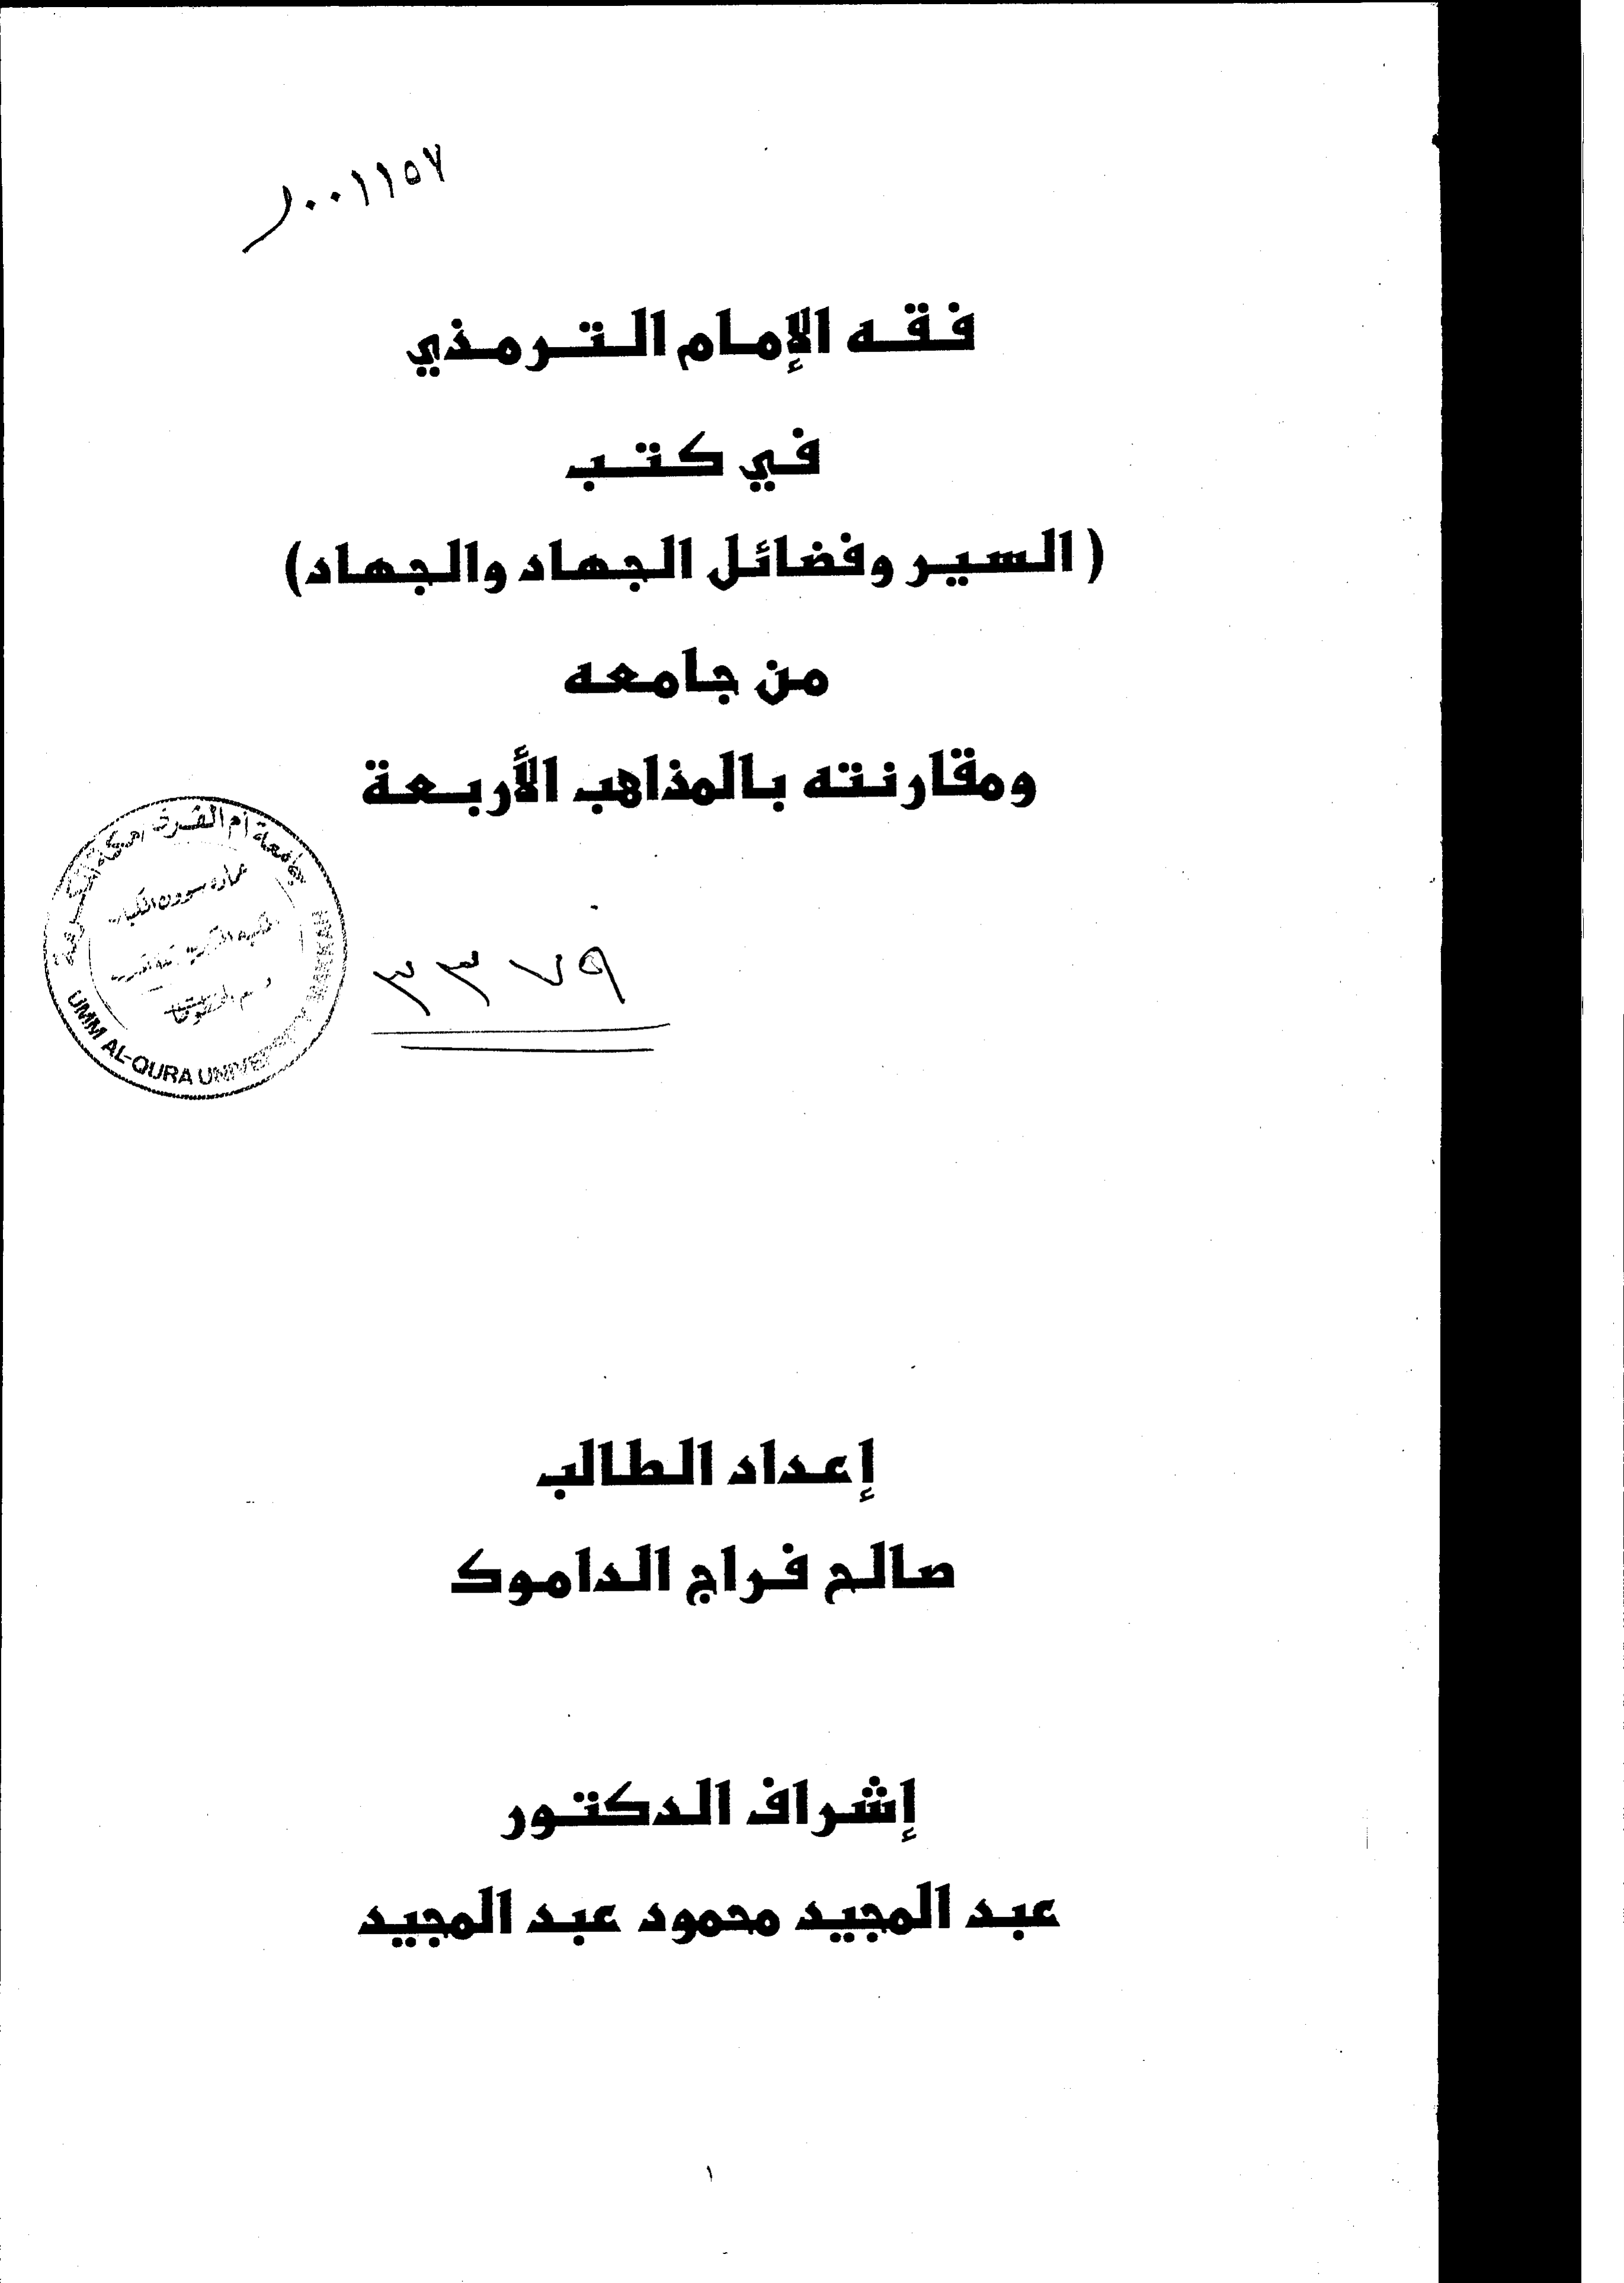 ١٠٠١١٥٧
فقه الإمام الترمذي
في كتب
( السير وفضائل الجهاد والجهاد)
من جامعه
ومقارنته بالمذاهب الأربعة
جامعة أم القرى بمكة المكرمة
UMM AL-QURA UNIVERSITY MAKKAH
٣٣٧٩
إعداد الطالب
صالح فراج الداموك
إشراف الدكتور
عبد المجيد محمود عبد المجيد
١